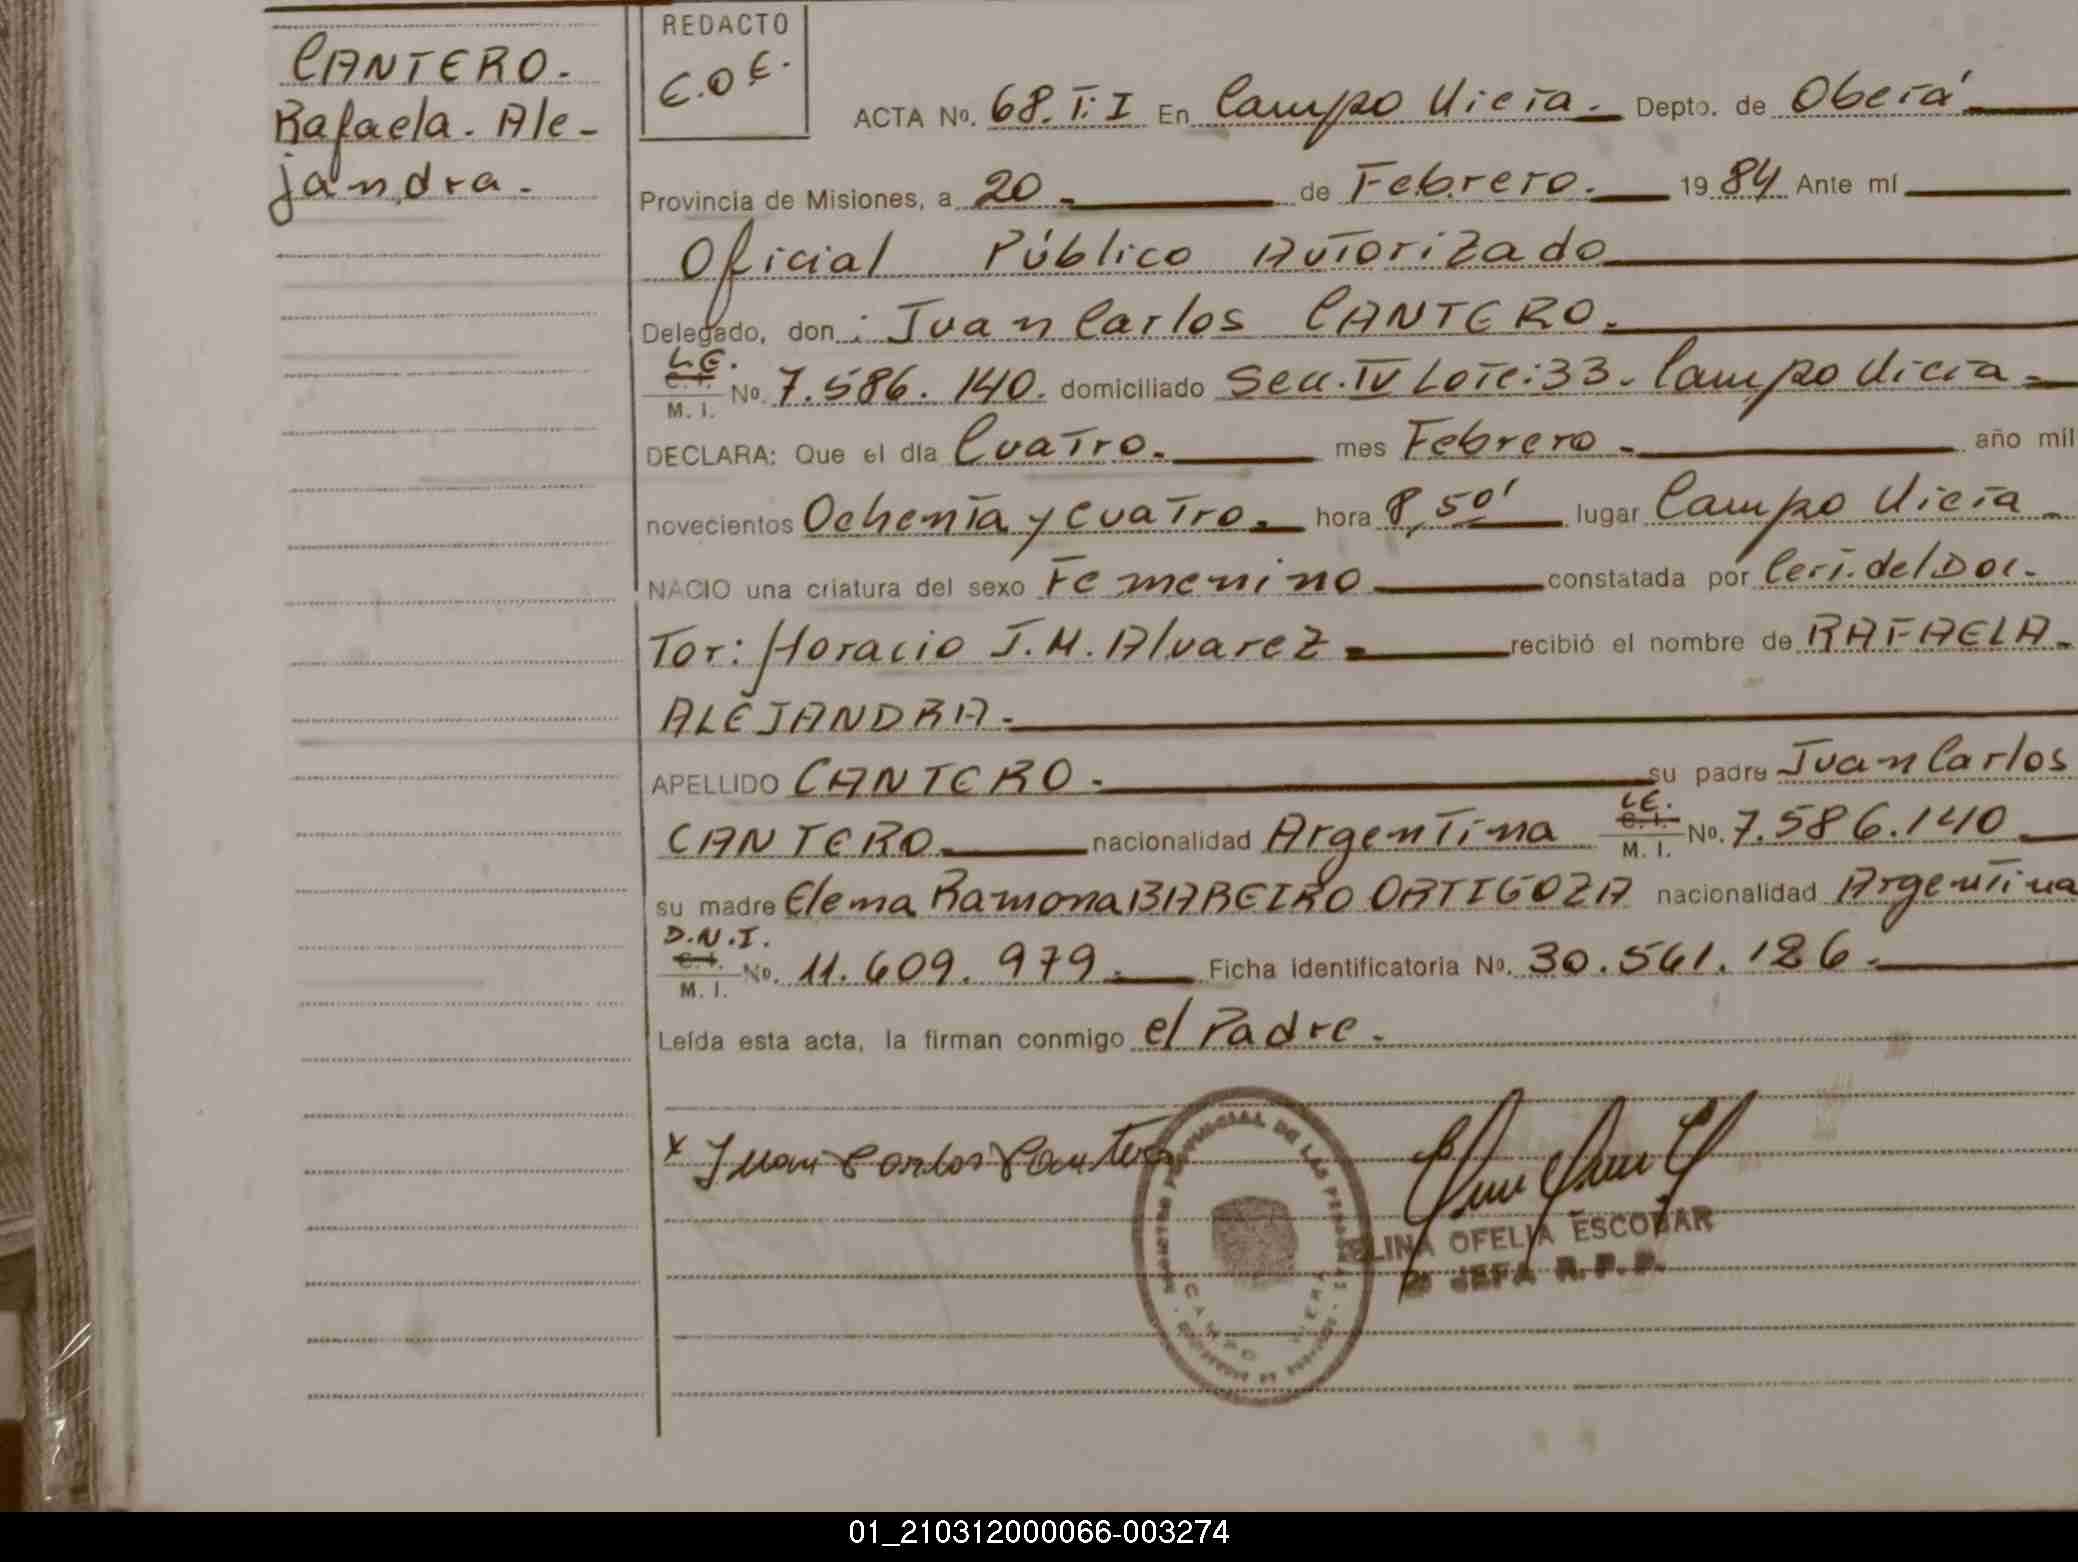 CANTERO.
Rafaela. Ale-
jandra.
REDACTO
E.O.E.
ACTA No. 68. T: I En Campo Viera. Depto. de Oberá
Provincia de Misiones, a 20 de Febrero. 1984 Ante mí
Oficial Público Autorizado
Delegado, don: Juan Carlos CANTERO.
L.E.
C. I.
M. I. No. 7.586.140. domiciliado Secc. IV Lote: 33. Campo Viera
DECLARA: Que el día Cuatro. mes Febrero. año mil
novecientos Ochenta y cuatro. hora 8,50' lugar Campo Viera
NACIO una criatura del sexo Femenino constatada por Cert. del Doc-
Tor: Horacio J.M. Alvarez recibió el nombre de RAFAELA-
ALEJANDRA.
APELLIDO CANTERO. su padre Juan Carlos
L.E.
CANTERO nacionalidad Argentina C. I. M. I. No. 7.586.140
su madre Elena Ramona BAREIRO ORTIGOZA nacionalidad Argentina
D.N.I.
C. I.
M. I. No. 11.609.979. Ficha identificatoria No. 30.561.186.
Leída esta acta, la firman conmigo el Padre.
x Juan Carlos Cantero
REGISTRO PROVINCIAL DE LAS PERSONAS
CAMPO VIERA
ELINA OFELIA ESCOBAR
JEFA R.P.P.
01_210312000066-003274